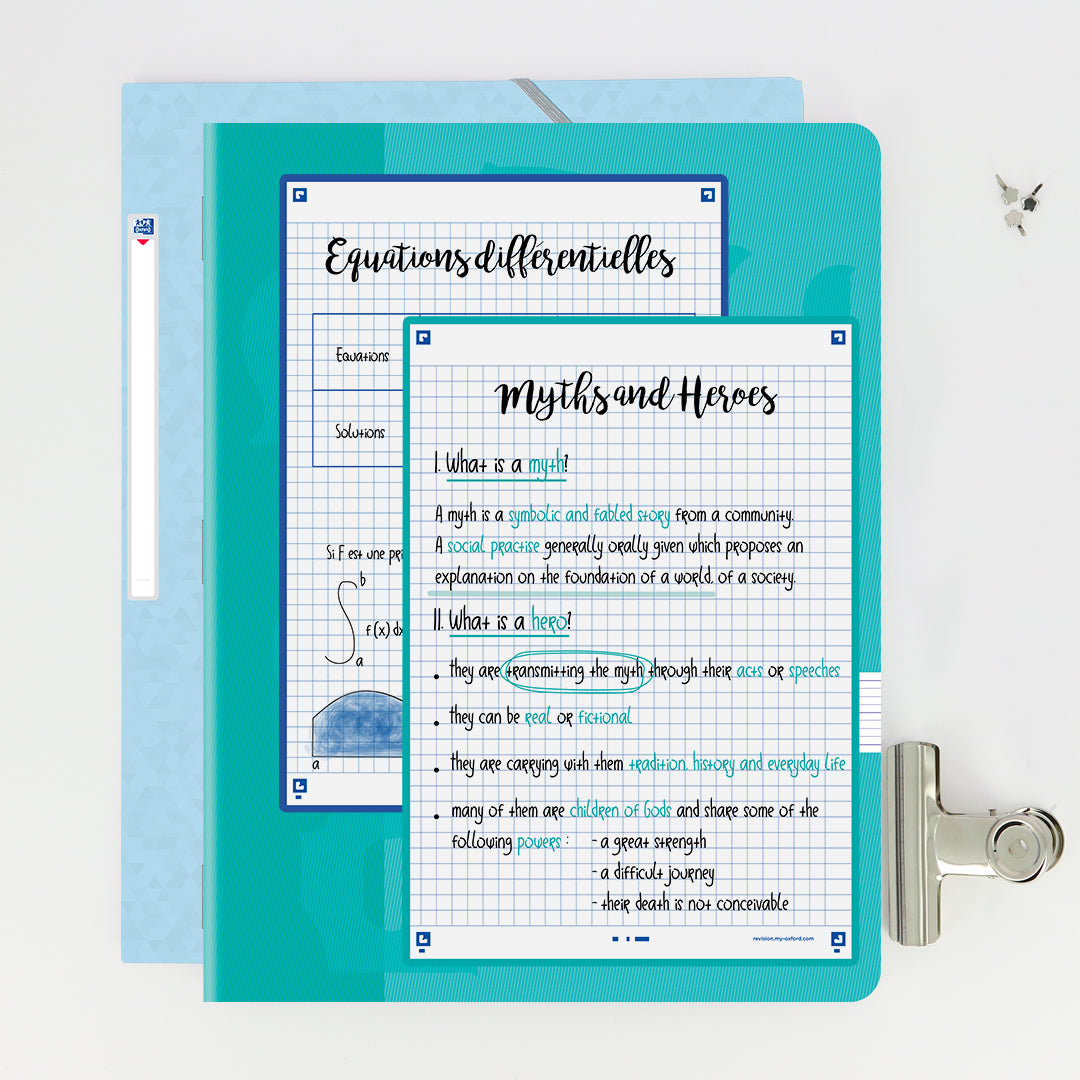 Equations différentielles
Equations
Solutions
Si F est une pri
b
f(x) dx
a
a
Myths and Heroes
I. What is a myth?
A myth is a symbolic and fabled story from a community.
A social practise generally orally given which proposes an
explanation on the foundation of a world, of a society.
II. What is a hero?
• they are transmitting the myth through their acts or speeches
• they can be real or fictional
• they are carrying with them tradition, history and everyday life
• many of them are children of Gods and share some of the
following powers : - a great strength
- a difficult journey
- their death is not conceivable
revision.my-oxford.com